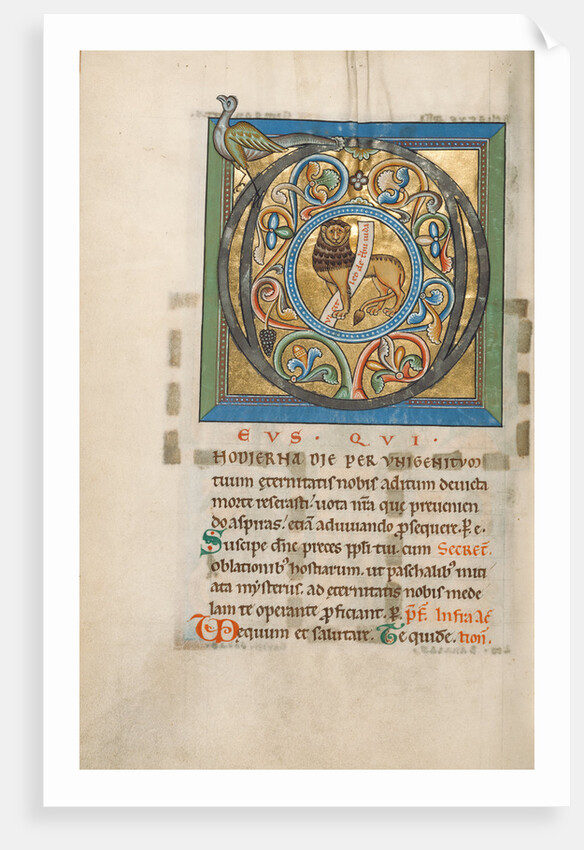 EVS · QVI ·
HODIERNA DIE PER VNIGENITVM
tuum eternitatis nobis aditum deuicta
morte reserasti / uota nra que preuenien
do aspiras / etiã adiuuando prosequere. P. e.
Suscipe dne preces ppli tui. cum Secret.
oblationib; hostiarum. ut paschalib; initi
ata mysteriis. ad eternitatis nobis mede
lam te operante proficiant. P. pf. Infra ac
equum et salutare. Te quide. tion.